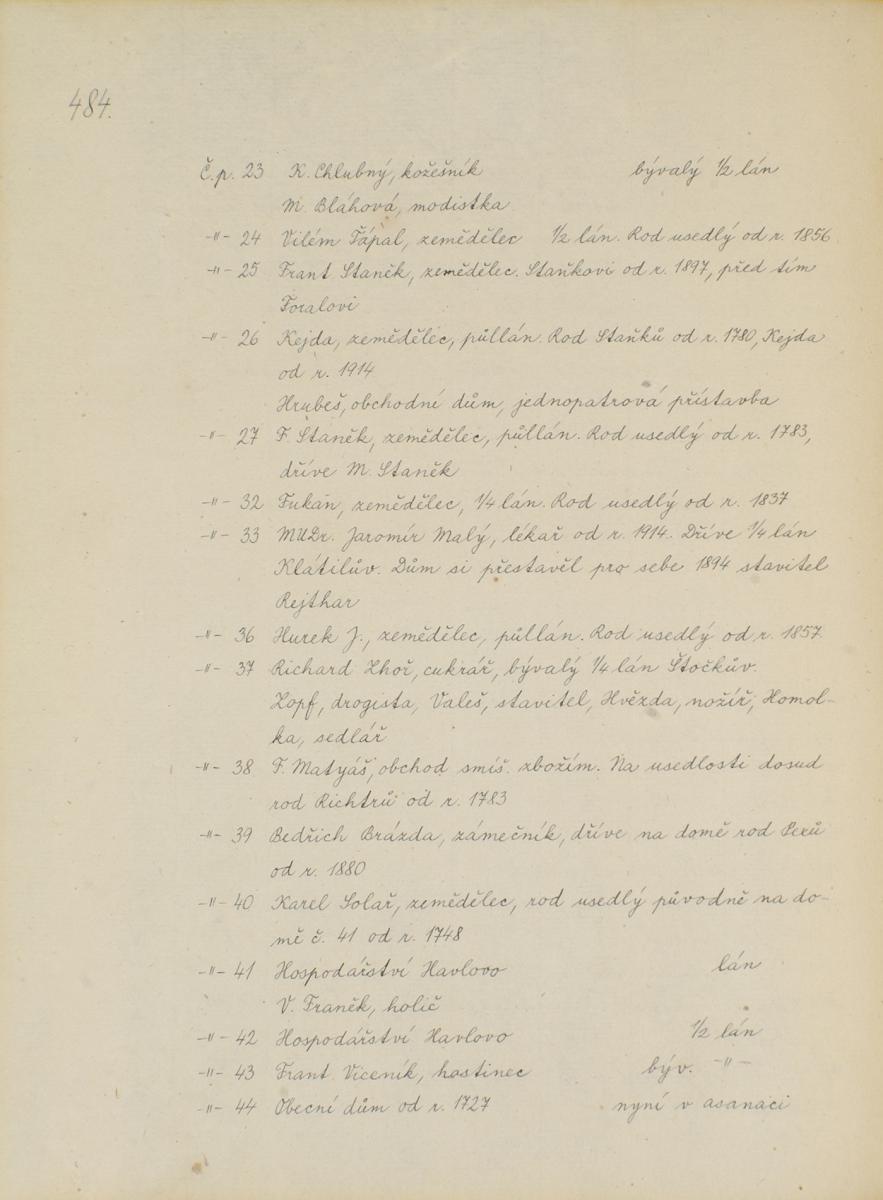 484.
Č.p. 23 K. Chlubný, kožešník bývalý 1/2 lán
M. Bláhová, modistka
-"- 24 Vilém Ťápal, zemědělec 1/2 lán. Rod usedlý od r. 1856
-"- 25 Frant. Staněk, zemědělec. Staňkovi od r. 1897, před tím
Foralovi
-"- 26 Kejda, zemědělec, půllán. Rod Staňků od r. 1780, Kejda
od r. 1914
Hrubeš, obchodní dům, jednopatrová přístavba
-"- 27 F. Staněk, zemědělec, půllán. Rod usedlý od r. 1783,
dříve M. Staněk
-"- 32 Fukan, zemědělec, 1/4 lán. Rod usedlý od r. 1837
-"- 33 MUDr. Jaromír Malý, lékař od r. 1914. Dříve 1/4 lán
Klátilův. Dům si přestavěl pro sebe 1894 stavitel
Rejthar
-"- 36 Hurek J., zemědělec, půllán. Rod usedlý od r. 1857
-"- 37 Richard Zhoř, cukrář, bývalý 1/4 lán Štočkův.
Zopf, drogista, Valeš, stavitel, Hvězda, nožíř, Homol-
ka, sedlář
-"- 38 F. Matyáš, obchod smíš. zbožím. Na usedlosti dosud
rod Richtrů od r. 1783
-"- 39 Bedřich Brázda, zámečník, dříve na domě rod Pexů
od r. 1880
-"- 40 Karel Solař, zemědělec, rod usedlý původně na do-
mě č. 41 od r. 1748
-"- 41 Hospodářství Havlovo lán
V. Franěk, holič
-"- 42 Hospodářství Havlovo 1/2 lán
-"- 43 Frant. Viceník, hostinec býv. -"-
-"- 44 Obecní dům od r. 1727 nyní v asanaci